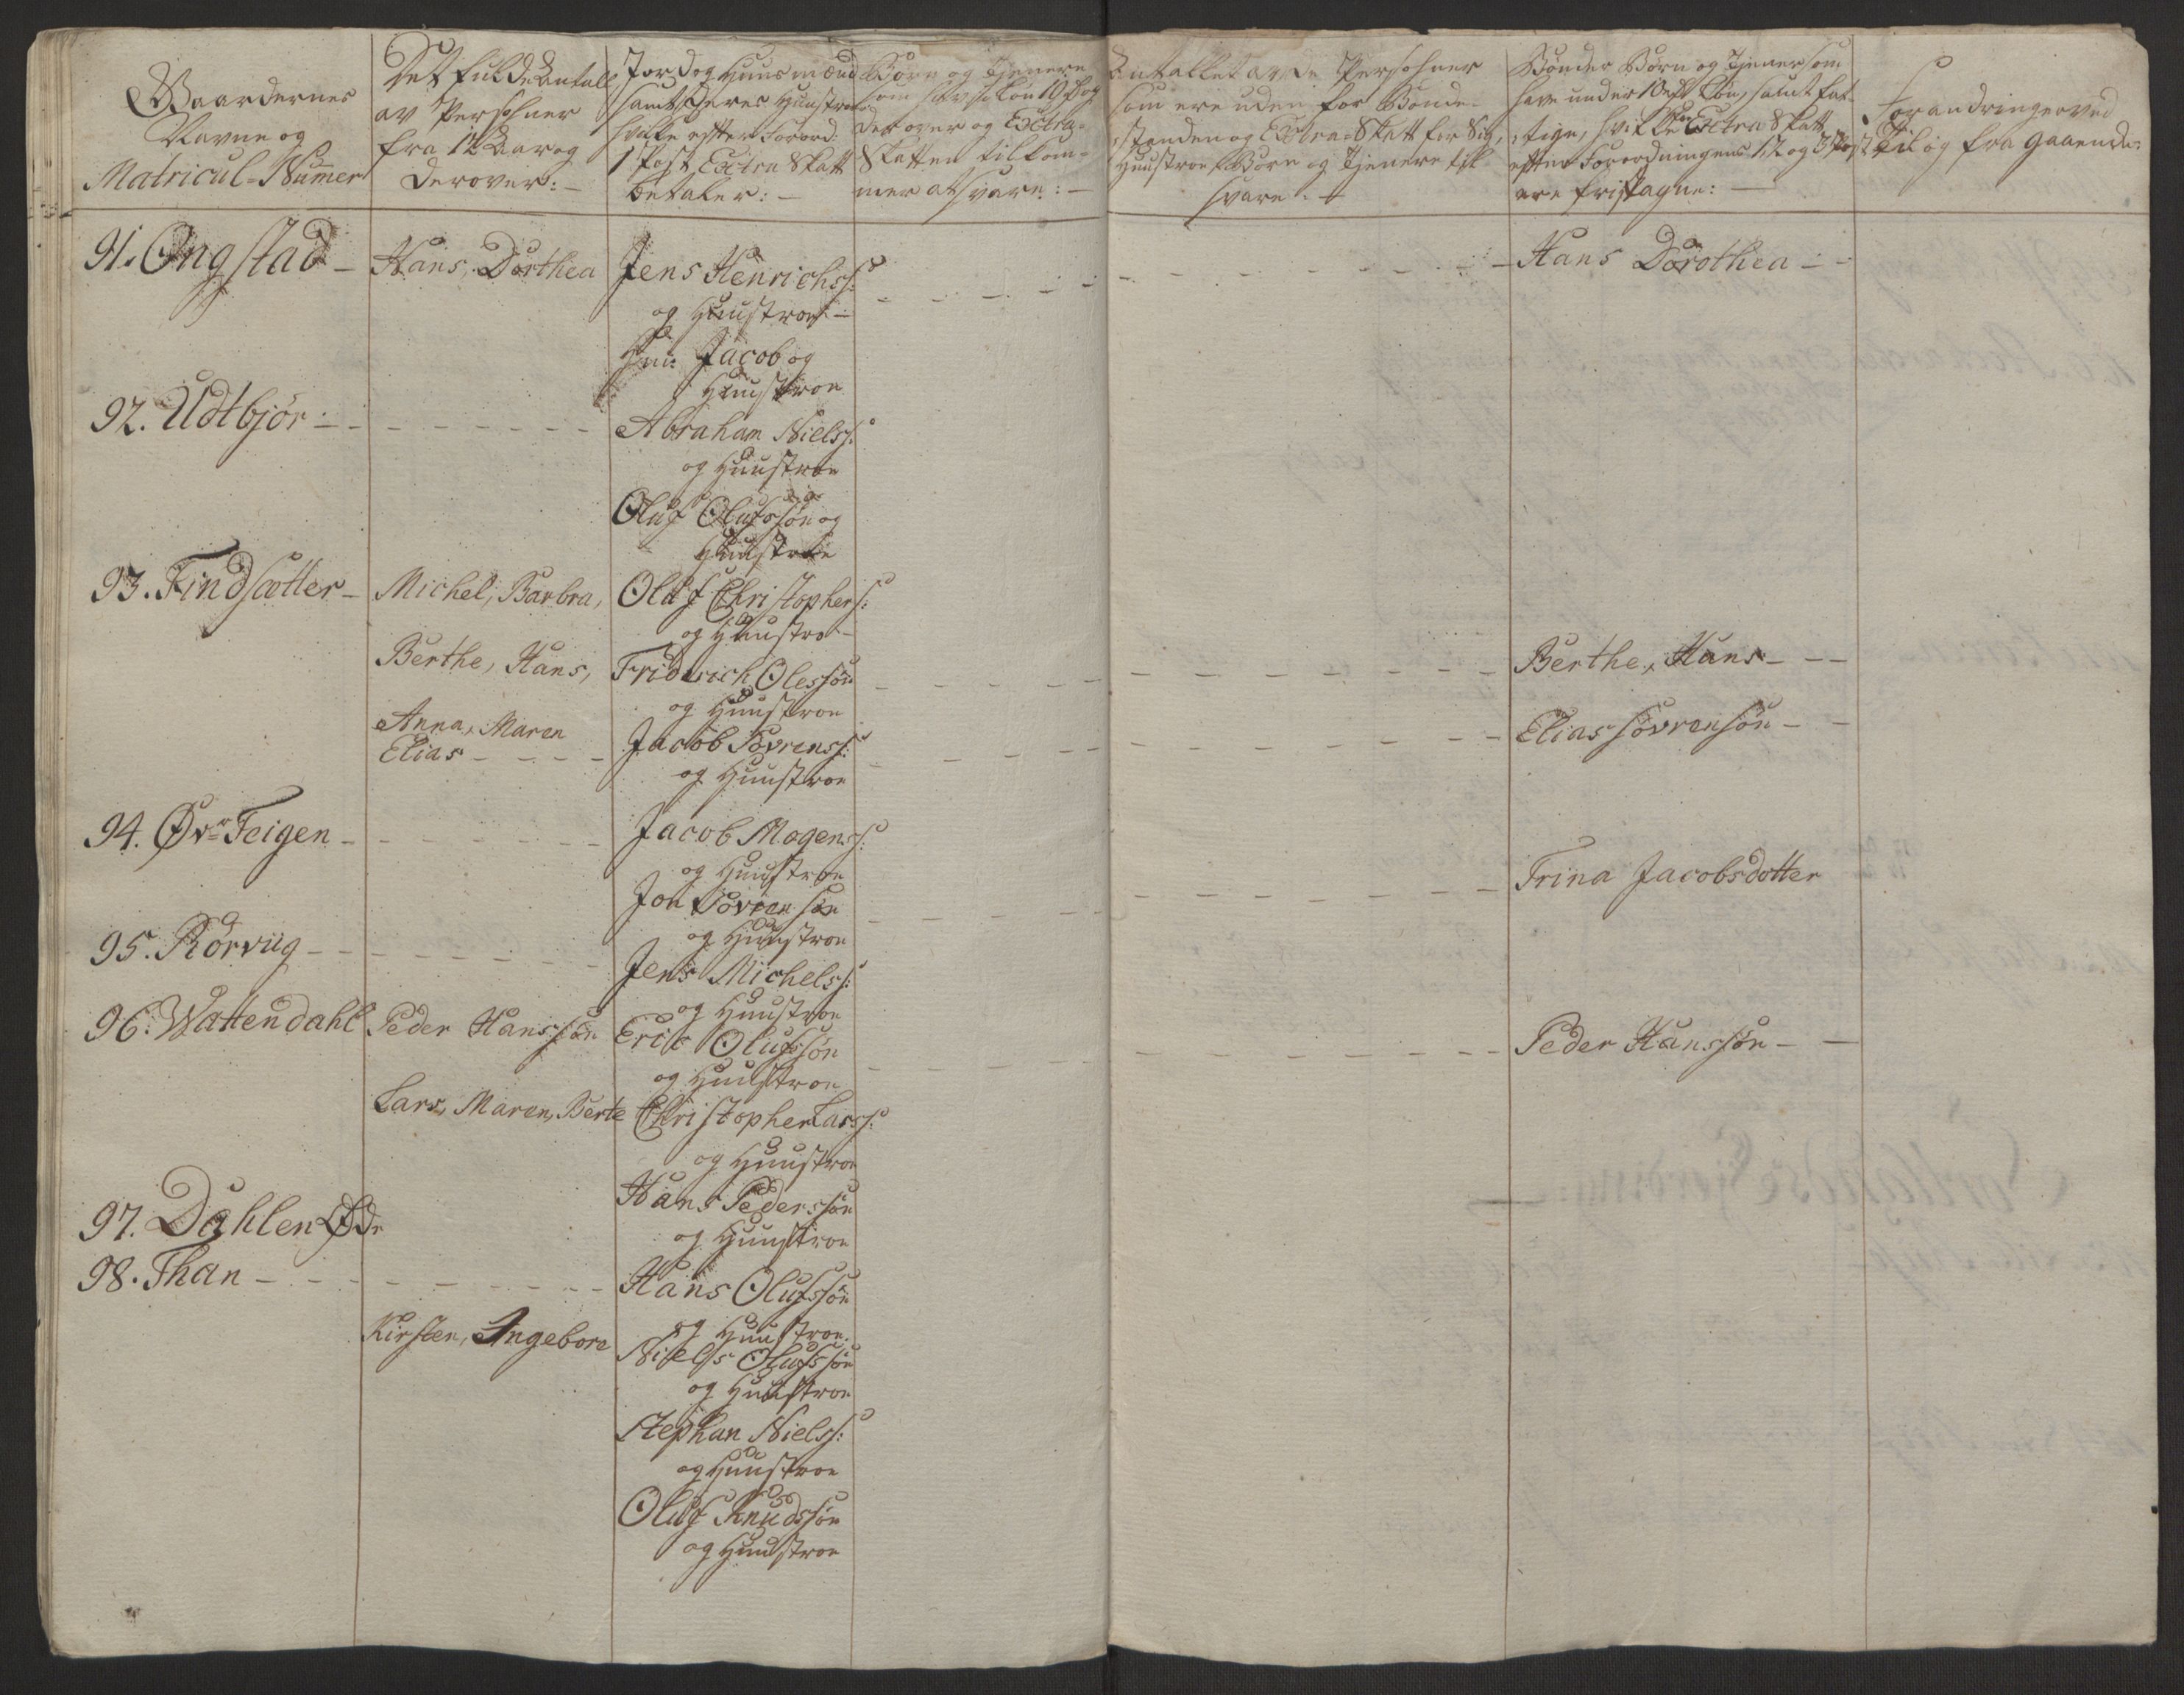 Gaardernes
Navne og
Matricul-Numer
Det fulde Antall
av Persohner
fra 12 Aar og
derover:
Jord og Huusmænd
samt deres Huustroe
hvilke efter Forord:
1 Post Extra Skatt
betaler:
Børn og Tjenere
som har Løn 10 og
derover og Extra-
Skatten tilkom-
mer at svare:
Antallet av de Persohner
som ere uden for Bonde-
standen og Extra-Skatt for Sig,
Huustroe, Børn og Tjenere til
svare
Bønder Børn og Tjener som
have under 10 Løn, samt fat-
tige, hvilke Extra Skatt
efter Forordningens 1te og 3 Post
ere fritagne:
Forandringer ved
Til og fra gaaende:
91. Ongstad - Hans, Dorthea
Jens Henrichss:
og Huustroe
Jacob og
Huustroe
Hans Dorothea
92. Udtbjør
Abraham Nielss:
og Huustroe
Oluf Olufssøn og
Huustroe
93. Findsætter - Michel, Barbra,
Oluf Christophers:
og Huustro
Berthe, Hans,
Friderich Olessøn
og Huustroe
Berthe, Hans
Anna, Maren
Elias
Jacob Sørenss:
og Huustroe
Elias Sørensøn
94. Øvr Feigen
Jacob Mogenss:
og Huustroe
Jon Sørensøn
og Huustroe
Trina Jacobsdotter
95. Rørviig
Jens Michelss:
og Huustroe
96. Wattendahl Peder Hanssøn
Eric Olufssøn
og Huustroe
Peder Hanssøn
Lars, Maren, Berte
Christopher Larss:
og Huustroe
Hans Pederssøn
og Huustroe
97. Dahlen Øde
98. Than
Hans Olufssøn
og Huustroe.
Kirsten, Ingeborg
Niels Olufssøn
og Huustroe
Stephan Nielss:
og Huustroe
Oluf Knudssøn
og Huustroe